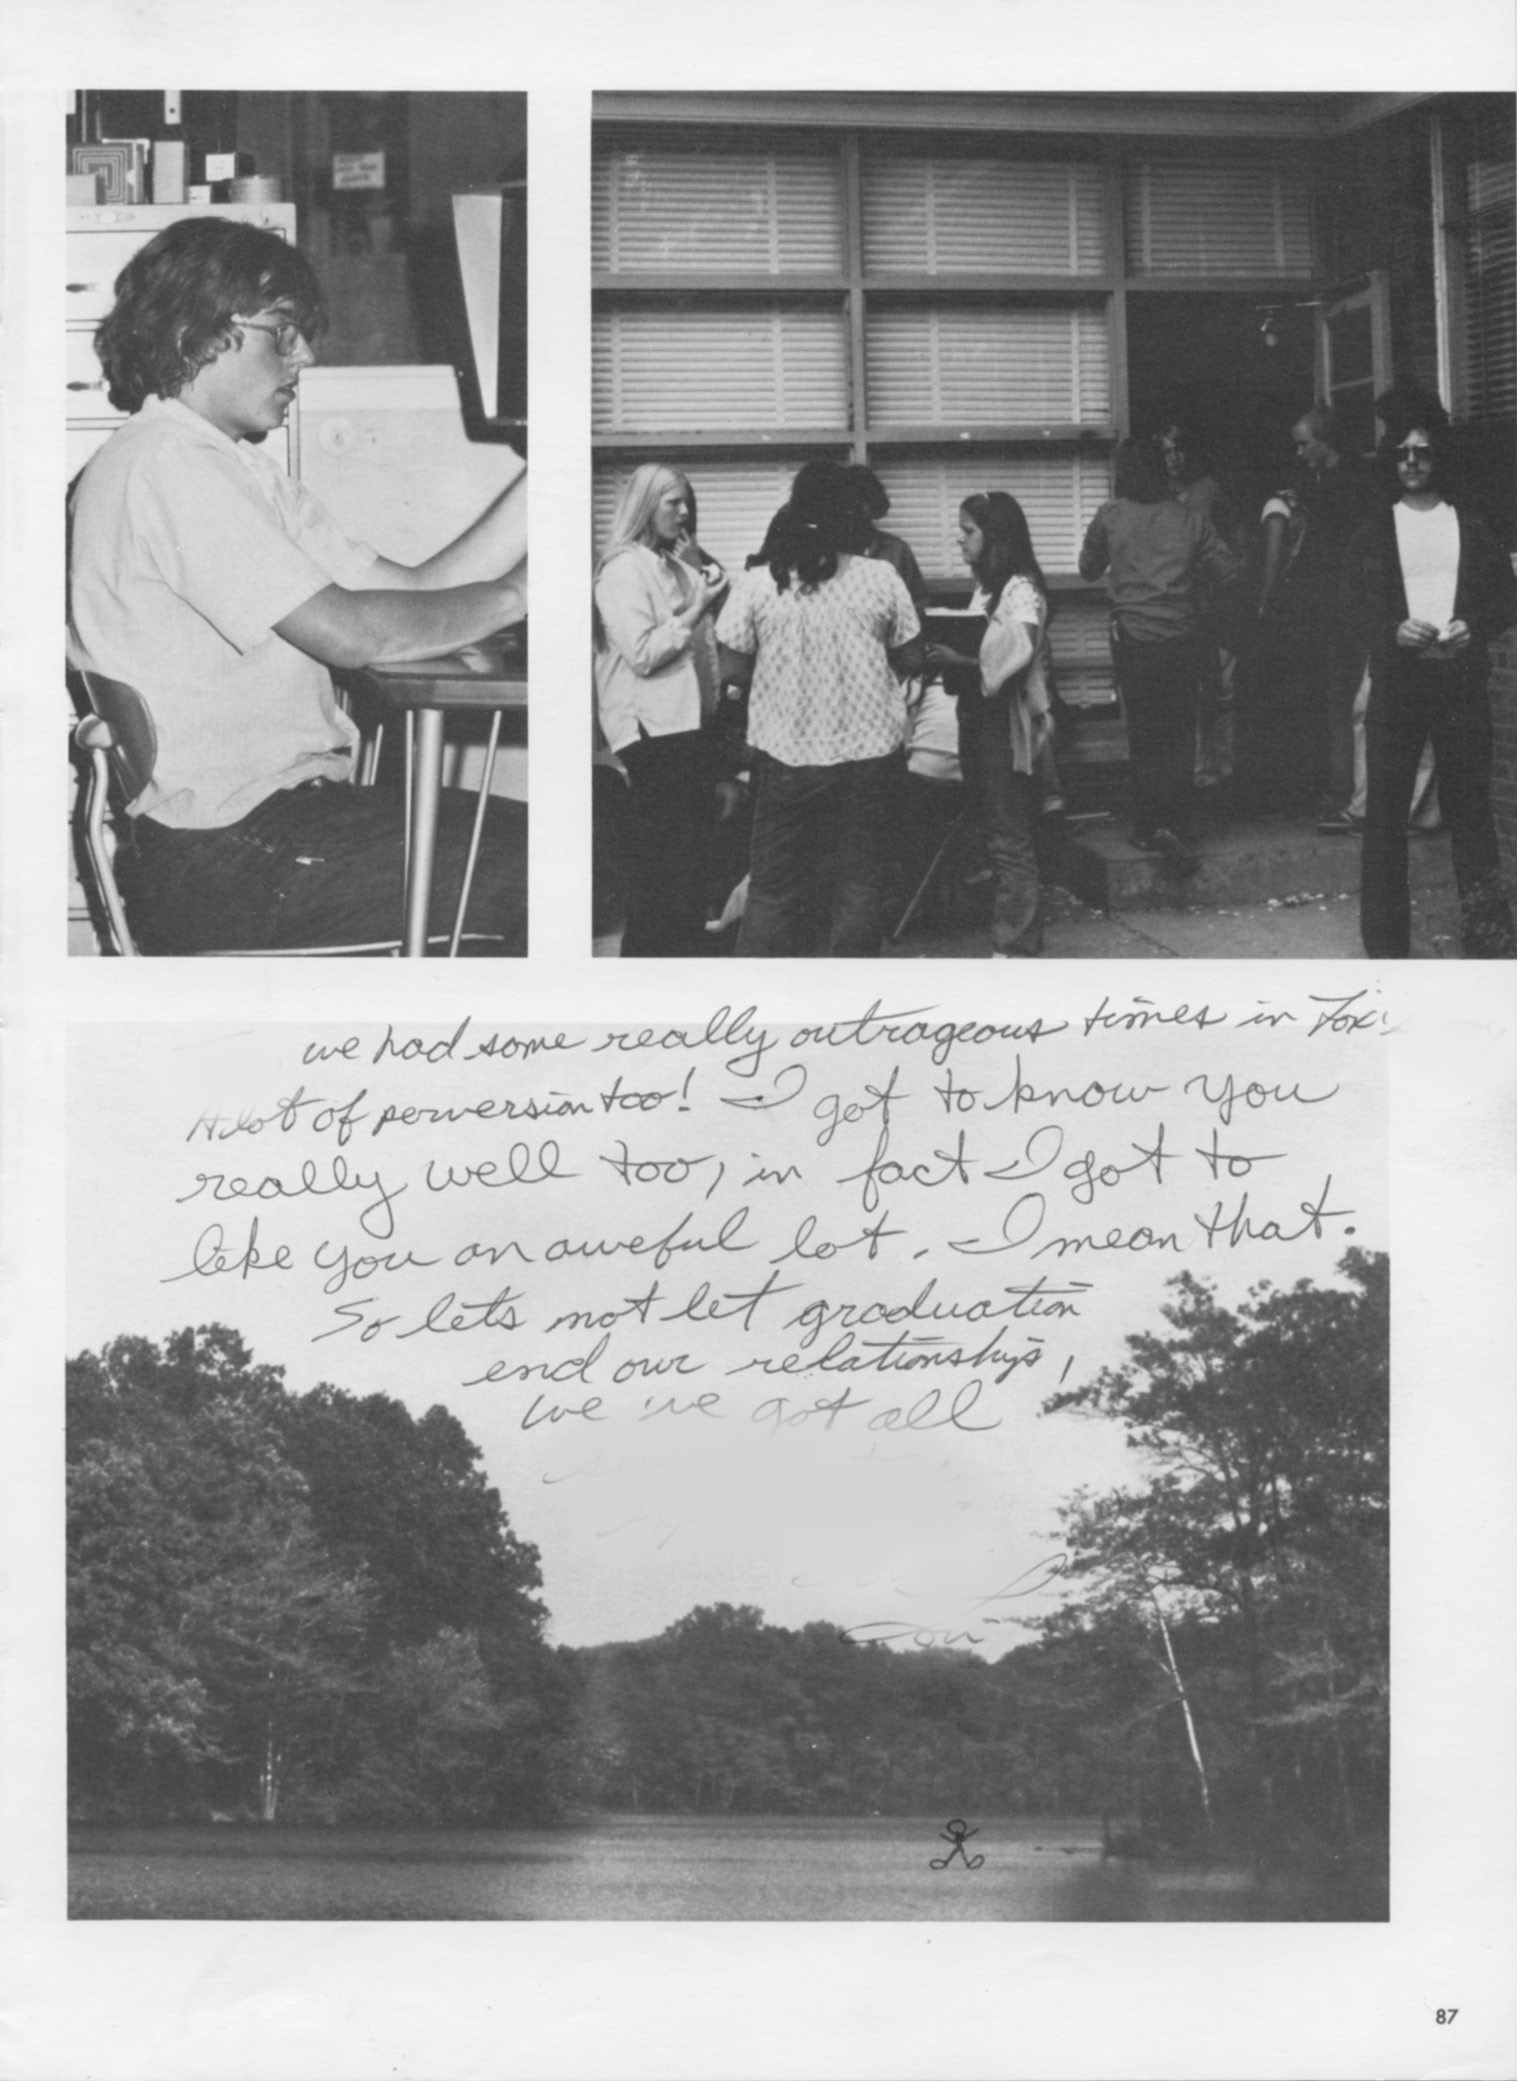 we had some really outrageous times in
A lot of perversion too! I got to know you
really well too, in fact I got to
like you an aweful lot. I mean that.
So lets not let graduation
end our relationship,
we've got all
87